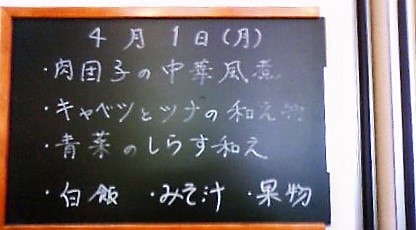 4月1日(月)
・肉団子の中華風煮
・キャベツとツナの和え物
・青菜のしらす和え
・白飯 ・みそ汁 ・果物